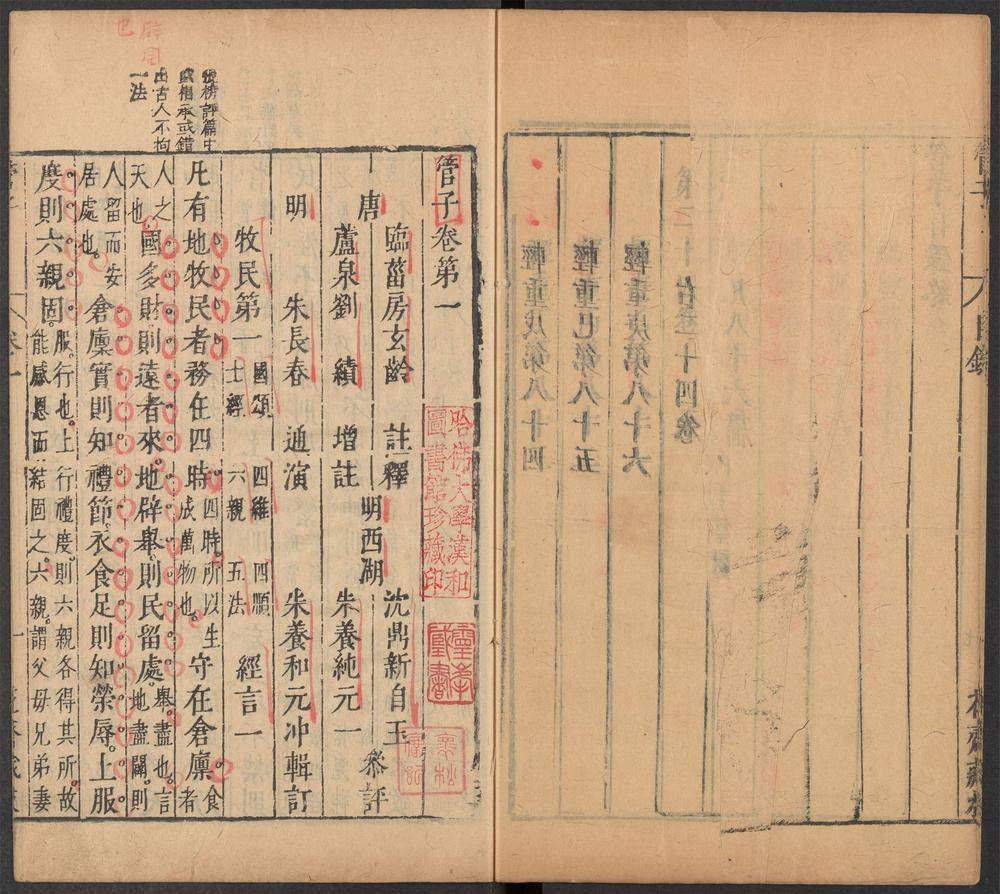 管子
目錄
花齋藏板
輕重庚第八十六
輕重己第八十五
輕重戊第八十四
管子卷第一
唐 臨菑房玄齡 註釋 明西湖 沈鼎新自玉 參評
蘆泉劉 績 增註 朱養純元一
明 朱長春 通演 朱養和元沖輯訂
牧民第一 國頌 四維 四順 士經 六親 五法 經言一
凡有地牧民者務在四時四時所以生成萬物也。守在倉廩食者
人之天也國多財則遠者來。地辟舉。則民留處。舉。盡也。言地盡闢。則
人留而安居處也。倉廩實則知禮節。衣食足則知榮辱。上服
度則六親固。服。行也。上行禮度。則六親各得其所。故能感恩而結固之。六親。謂父母兄弟妻
張榜評篇中
或相承或錯
出古人不拘
一法
哈佛大學漢和
圖書館珍藏印